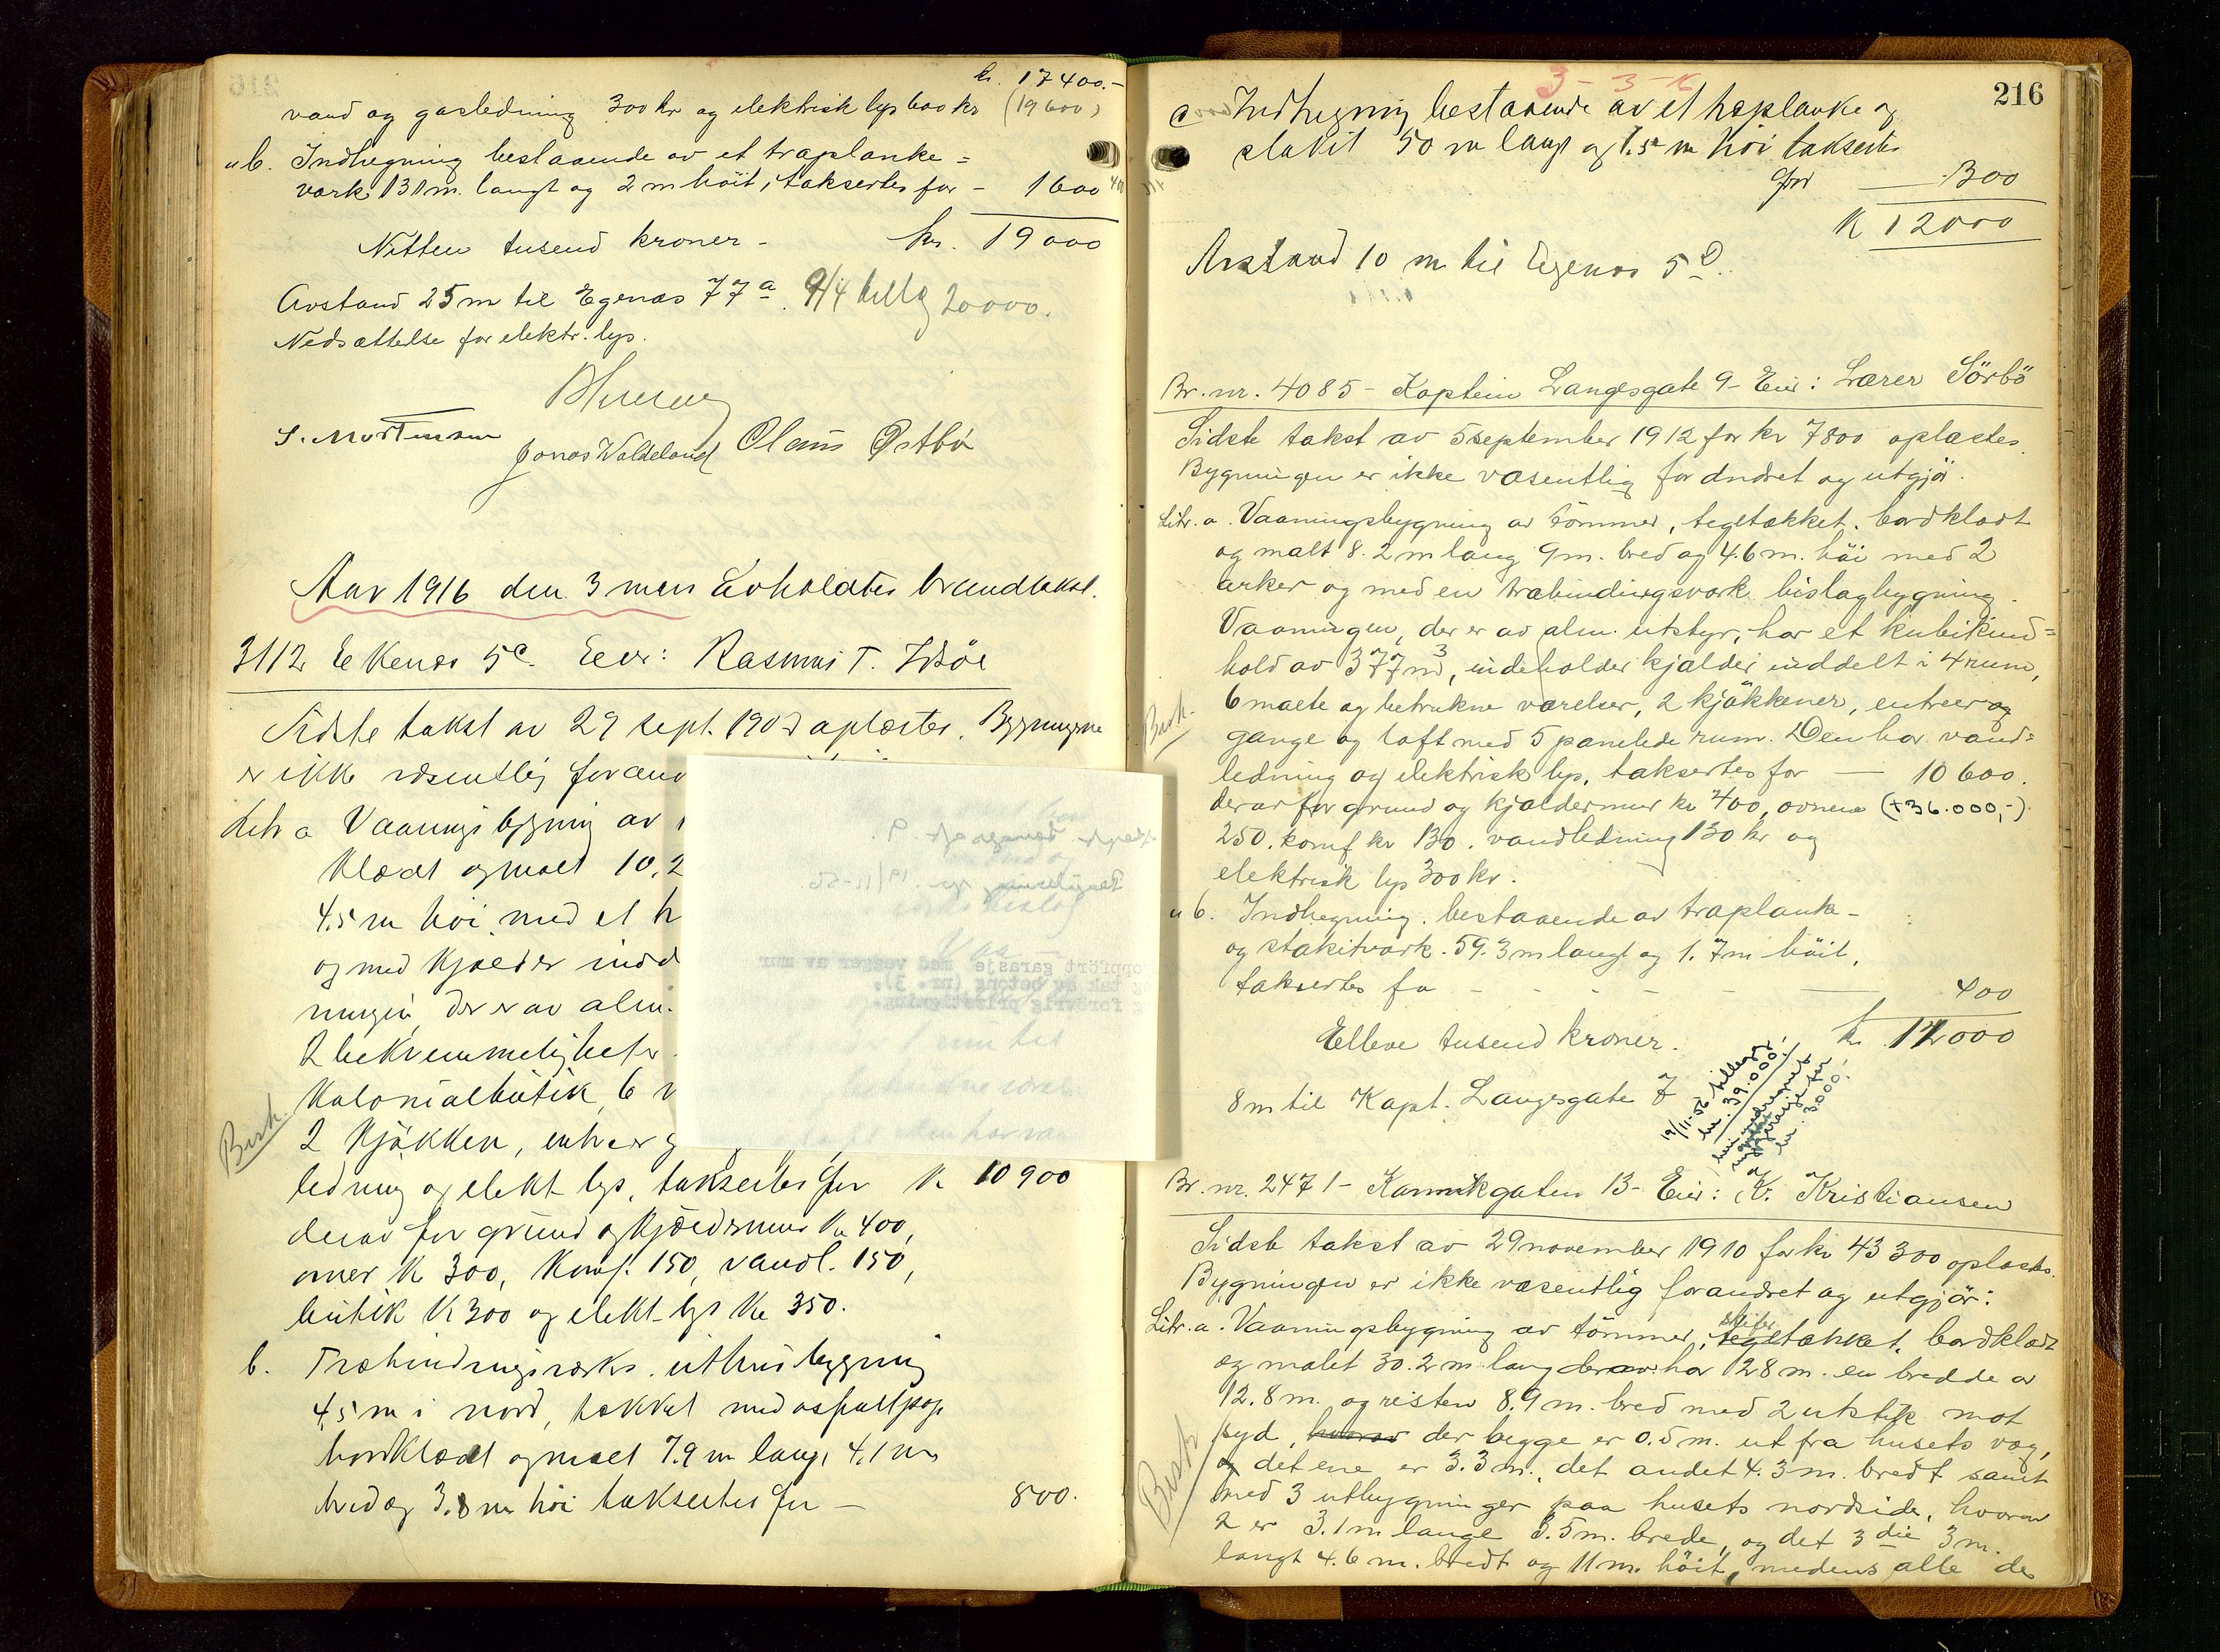 kr. 17400.-
vand og gasledning 300 kr og elektrisk lys 600 kr (19600)
" b. Indhegning bestaaende av et træplanke=
verk 131 m. langt og 2 m høit, taksertes for - 1600
Nitten tusend kroner - kr. 19000
Avstand 25 m til Egenæs 77a. 9/4 20000.
Nedsættelse for elektr. lys.
S. Mortensen
Jonas Waldeland Claus Østbø
Aar 1916 den 3 mars avholdtes brandtakst.
3112 Ekenæs 5c. Eier: Rasmus T.
Sidste takst av 29 sept. 190 oplæstes. Bygningerne
er ikke væsentlig foran
Litr a Vaaningsbygning av
klædt og malt 10,2
4,5 m høi, med et h
og med kjælder indd
ningen der er av alm.
2 bekvemmeligheter
kolonialbutik, 6 v
Bust.
2 kjøkken, entreer g
ledning og elekt lys, taksertes for kr 10900
derav for grund og kjældermur kr 400,
ovner kr 300, komf. 150, vandl. 150,
butik kr 300 og elekt. lys kr 350.
b. Træbindingsverks uthusbygning
4,5 m i nord, tækket med asfaltpap
bordklædt og malt 7.9 m lang, 4,1 m
bred og 3.8 m høi taksertes for - 800.
oppført garasje med vegger av mur
og tak av betong (nr. 3),
g fordyrig prisstigning.
3-3-16
216
c Indhegning bestaaende av et træplanke og
stakit 50 m langt og 1.5 m høi taksertes
for 300
K 12000
Avstand 10 m til Egenæs 5D.
Br. nr. 4085 - Kaptein Langesgate 9 - Eier: Lærer Sörbö
Sidste takst av 5 september 1912 for kr 7800 oplæstes.
Bygningen er ikke væsentlig forandret og utgjör.
Litr. a. Vaaningsbygning av tömmer, tegltækket, bordklædt
og malt 8.2 m lang 9 m. bred og 4.6 m. höi med 2
arker og med en træbindingsverk bislagbygning.
Vaaningen, der er av alm. utstyr, har et kubikind=
hold av 377 m3, indeholder kjælder inddelt i 4 rum,
6 malte og betrukne værelser, 2 kjökkener, entreer og
gange og loft med 5 panelede rum. Den har vand=
ledning og elektrisk lys, taksertes for - 10600.
derav for grund og kjældermur kr 400, ovnene (+36.000,-)
250. komf kr 130. vandledning 130 kr og
elektrisk lys 300 kr.
" b. Indhegning bestaaende av træplanke-
og stakitverk. 59.3 m langt og 1.7 m höit,
taksertes for - 400
Elleve tusend kroner. kr. 11000
8 m til Kapt. Langesgate 7
19/11-56 tillegg
kr. 39.000,-
kr. 3000.-
Br. nr. 2471 - Kannikgaten 13 - Eier: K. Kristiansen
Sidste takst av 29 november 1910 for kr 43300 oplæstes.
Bygningen er ikke væsentlig forandret og utgjör:
Litr. a. Vaaningsbygning av tömmer, skifer tegltækket, bordklædt
og malet 30.2 m lang derav har 12.8 m. en bredde av
12.8 m. og resten 8.9 m. bred med 2 utstik mot
syd, hvorav der begge er 0.5 m. ut fra husets væg,
og det ene er 3.3 m., det andet 4.3 m. bredt samt
med 3 utbygninger paa husets nordside, hvorav
2 er 3.1 m lange 3.5 m. brede, og det 3die 3 m.
langt 4.6 m. bredt og 11 m. höit, medens alle de